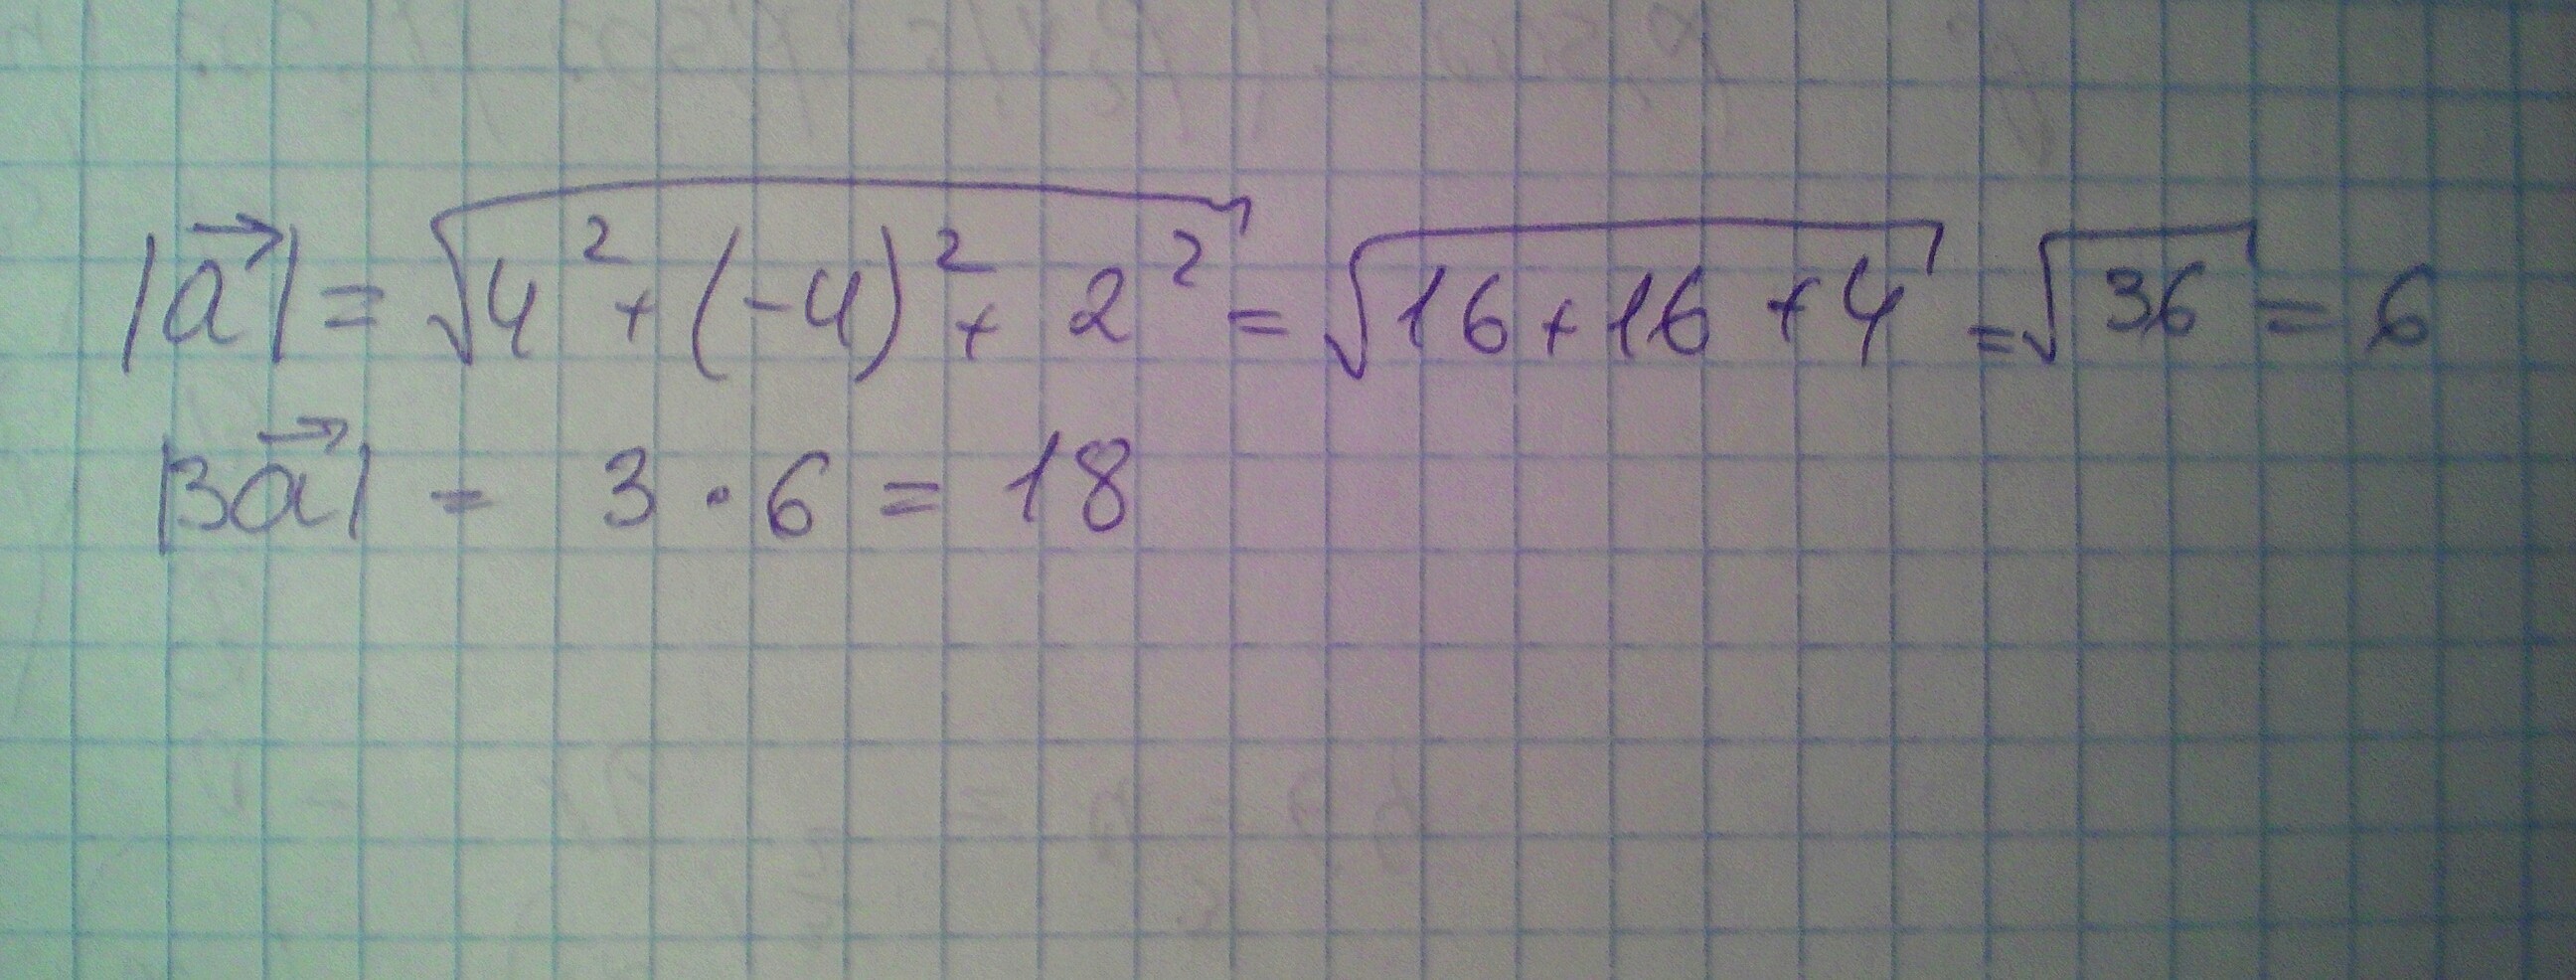 |a⃗| = √(4² + (-4)² + 2²) = √(16 + 16 + 4) = √36 = 6
|3a⃗| = 3 · 6 = 18